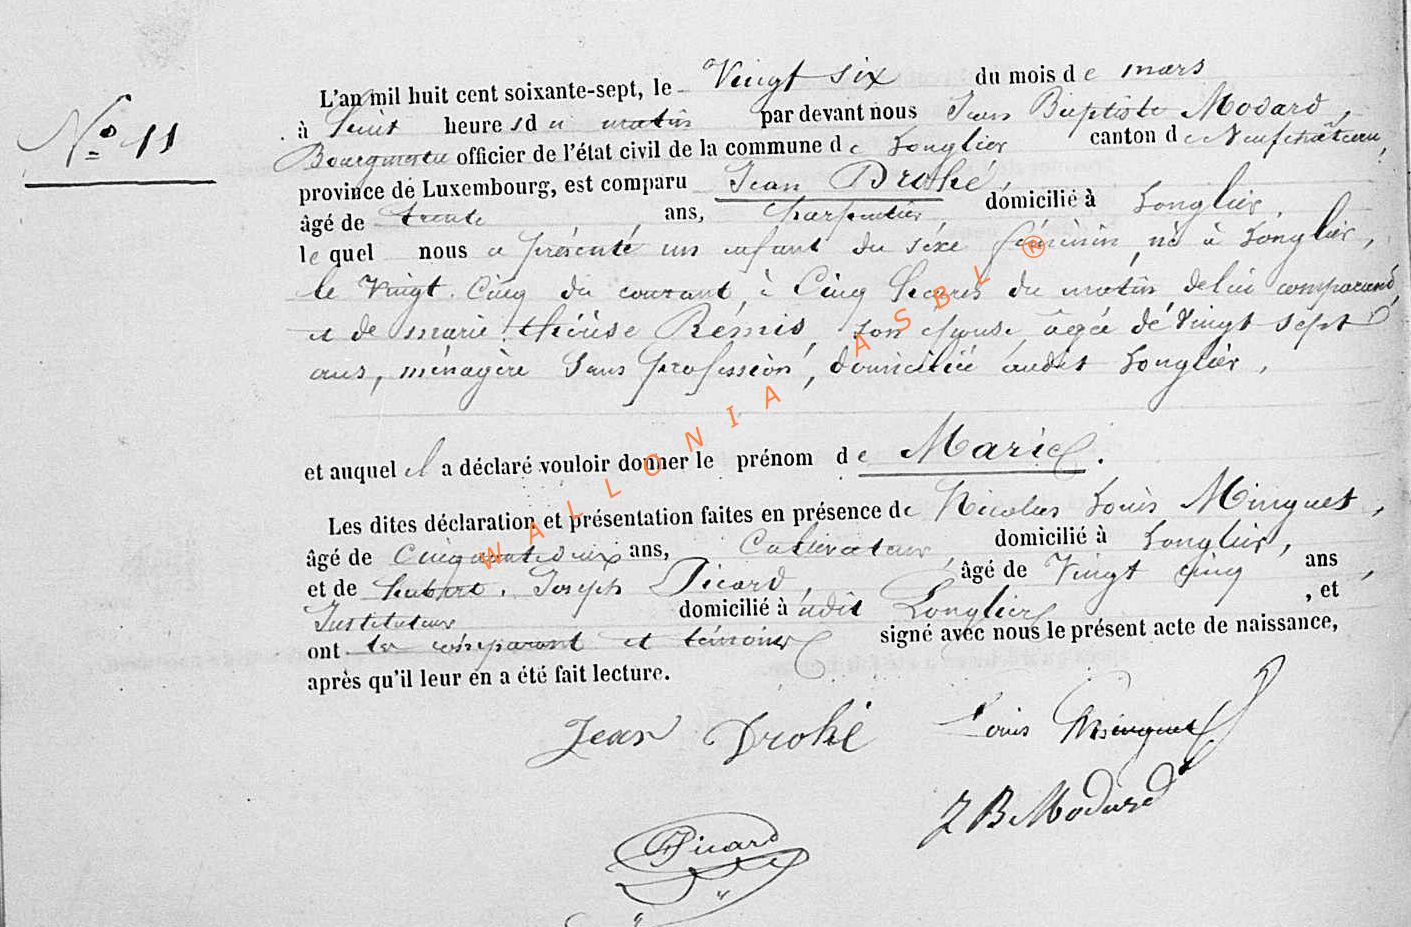 N° 11
L'an mil huit cent soixante-sept, le Vingt six du mois de mars
à huit heures du matin par devant nous Jean Baptiste Modard,
Bourgmestre officier de l'état civil de la commune de Longlier canton de Neufchâteau,
province de Luxembourg, est comparu Jean Drohé,
âgé de trente ans, charpentier domicilié à Longlier,
lequel nous a présenté un enfant du séxe féminin, né à Longlier,
le Vingt-Cinq du courant, à Cinq heures du matin, de lui comparant,
et de marie thérèse Rémis, son épouse, agée de Vingt sept
ans, ménagère sans profession, domiciliée audit Longlier,
et auquel il a déclaré vouloir donner le prénom de Marie.
Les dites déclaration et présentation faites en présence de Nicolas Louis Minguet,
âgé de Cinquante deux ans, Cultivateur, domicilié à Longlier,
et de hubert, Joseph Picard, âgé de Vingt cinq ans,
Instituteur domicilié à udit Longlier, et
ont le comparant et témoins signé avec nous le présent acte de naissance,
après qu'il leur en a été fait lecture.
Jean Drohé Louis Minguet
J B Modard
Picard
WALLONIA ASBL ®